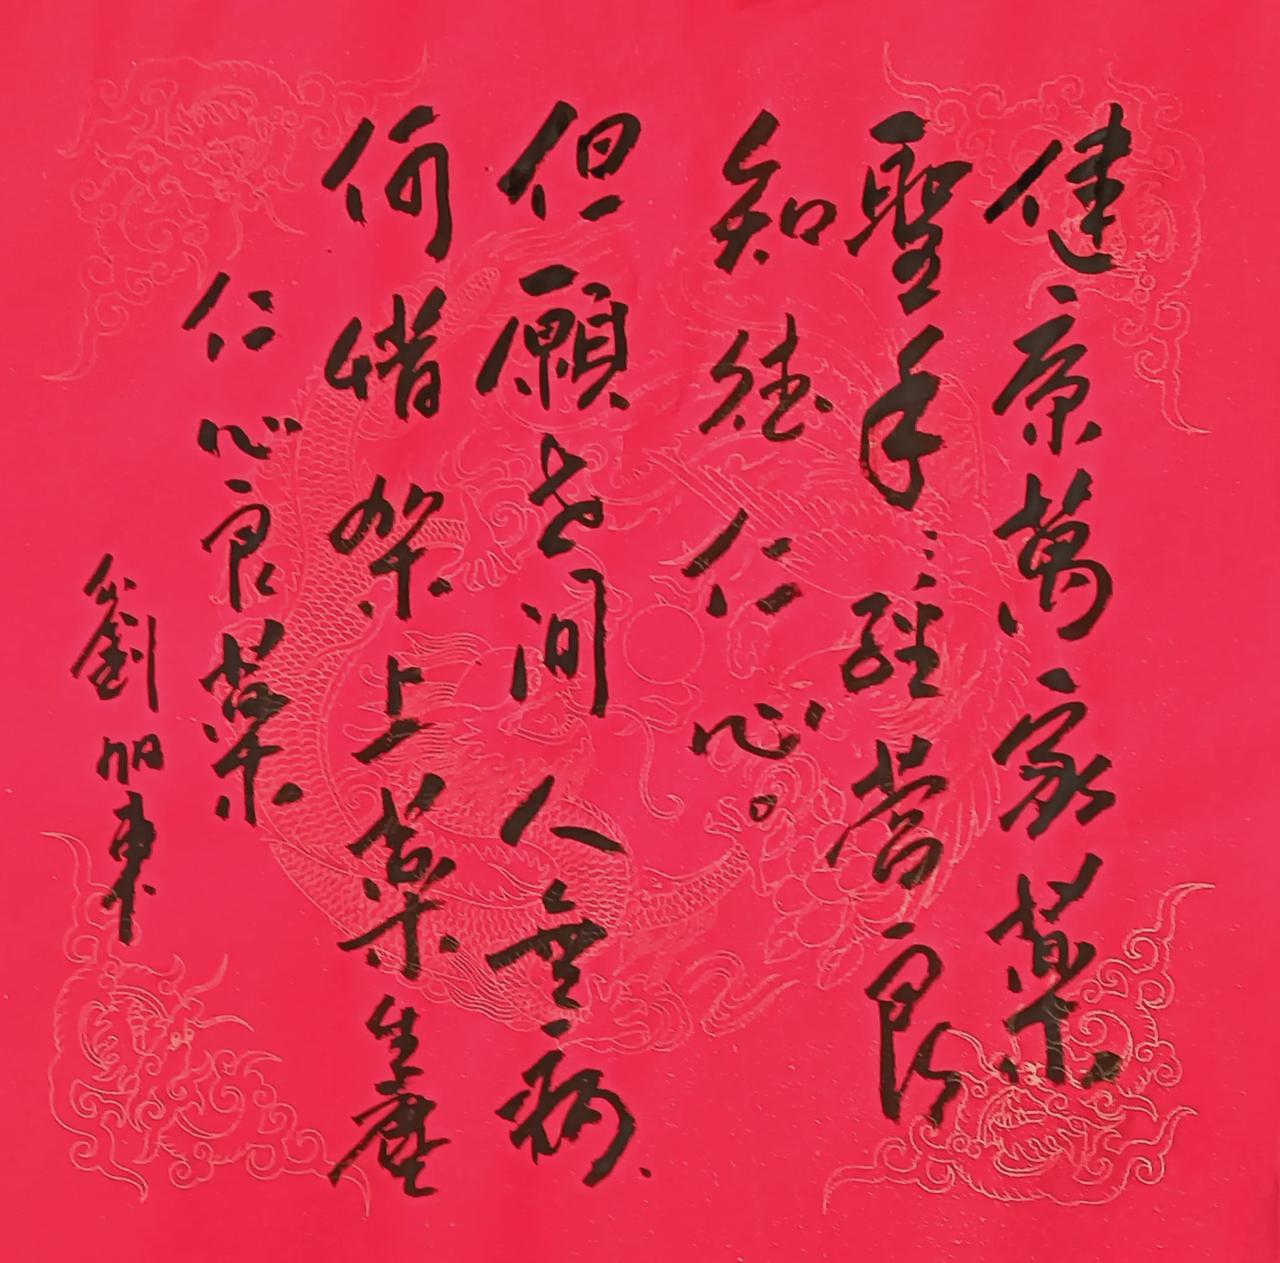 健康萬家藥
聖手…經營良
知德仁心。
但願世間人無病
何惜架上藥生塵
仁心良藥
劉旭東